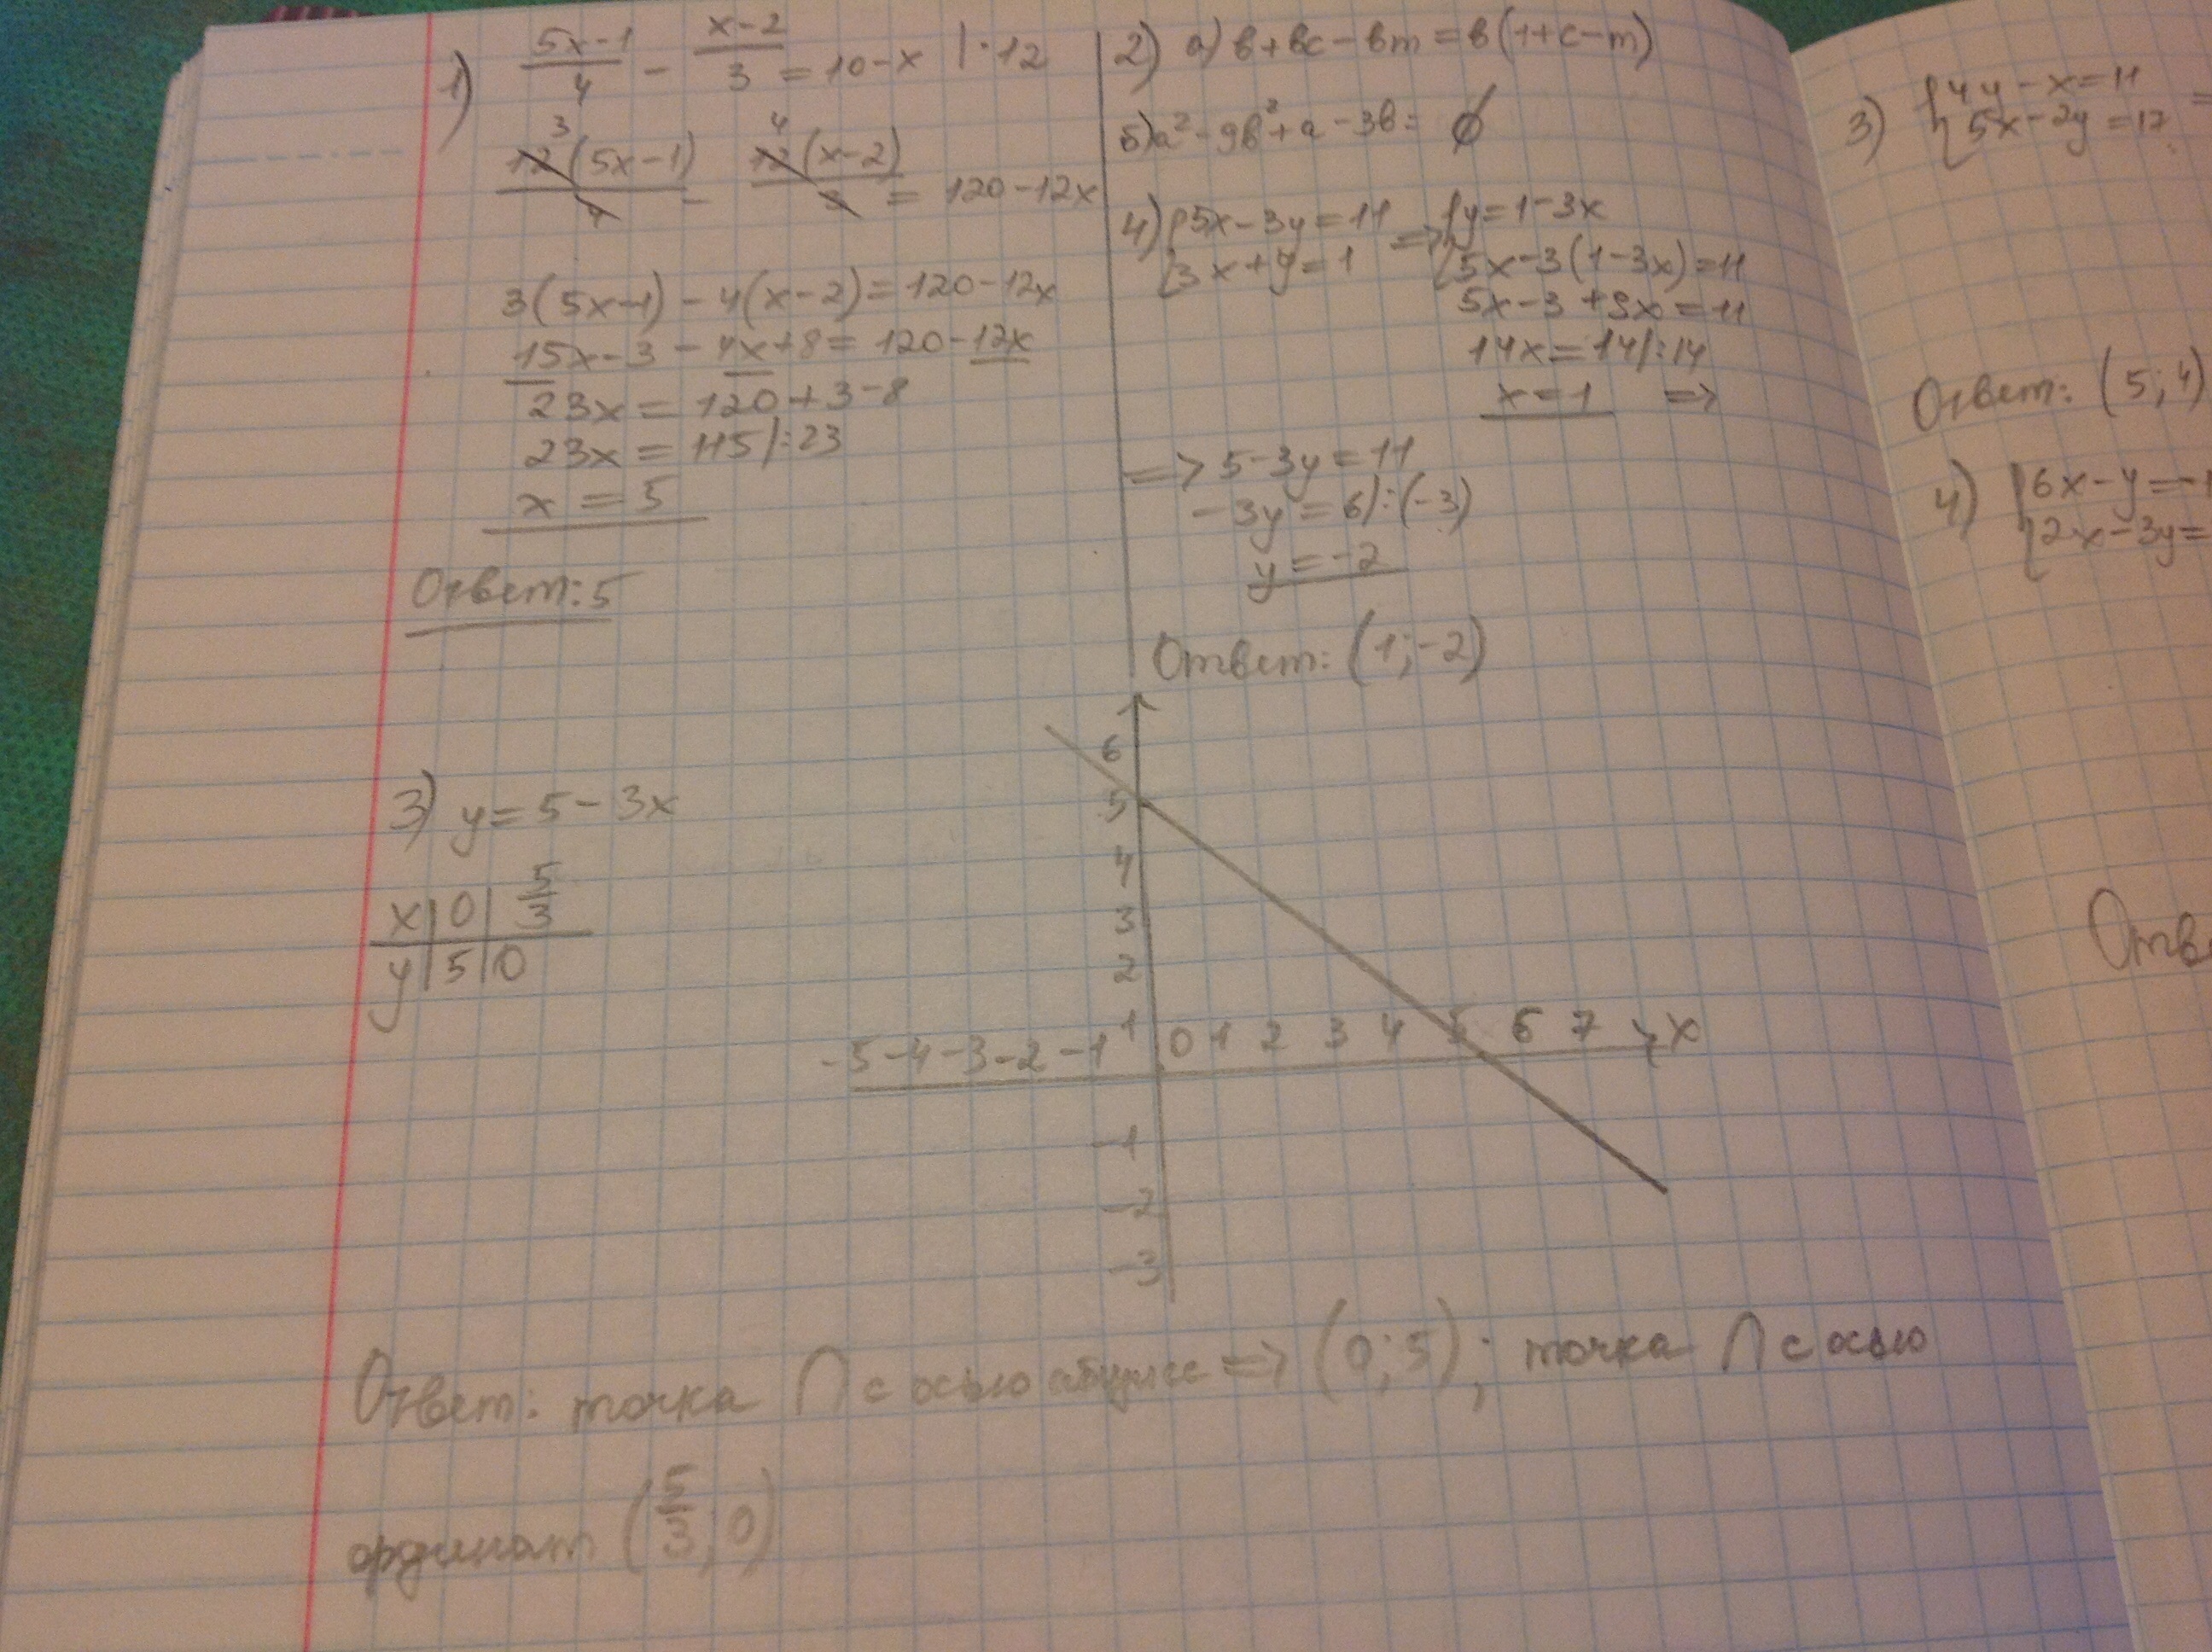 1) (5x-1)/4 - (x-2)/3 = 10-x |·12
3 4
12(5x-1)/4 - 12(x-2)/3 = 120-12x
3(5x-1) - 4(x-2) = 120-12x
15x-3-4x+8 = 120-12x
23x = 120+3-8
23x = 115 |:23
x = 5
Ответ: 5
2) а) в+вс-вm = в(1+с-m)
б) а²-9в²+а-3в = ∅
4) {5x-3y=11 => {y=1-3x
{3x+y=1 {5x-3(1-3x)=11
5x-3+9x=11
14x=14 |:14
x=1 =>
=> 5-3y=11
-3y=6 |:(-3)
y=-2
Ответ: (1;-2)
3) y=5-3x
x | 0 | 5/3
y | 5 | 0
6
5
4
3
2
1
-5 -4 -3 -2 -1 0 1 2 3 4 5 6 7 x
-1
-2
-3
Ответ: точка ∩ с осью абцисс => (0;5); точка ∩ с осью
ординат (5/3; 0)
3) {4y-x=11 =
{5x-2y=17
Ответ: (5;4)
4) {6x-y=-1
{2x-3y=
Отве